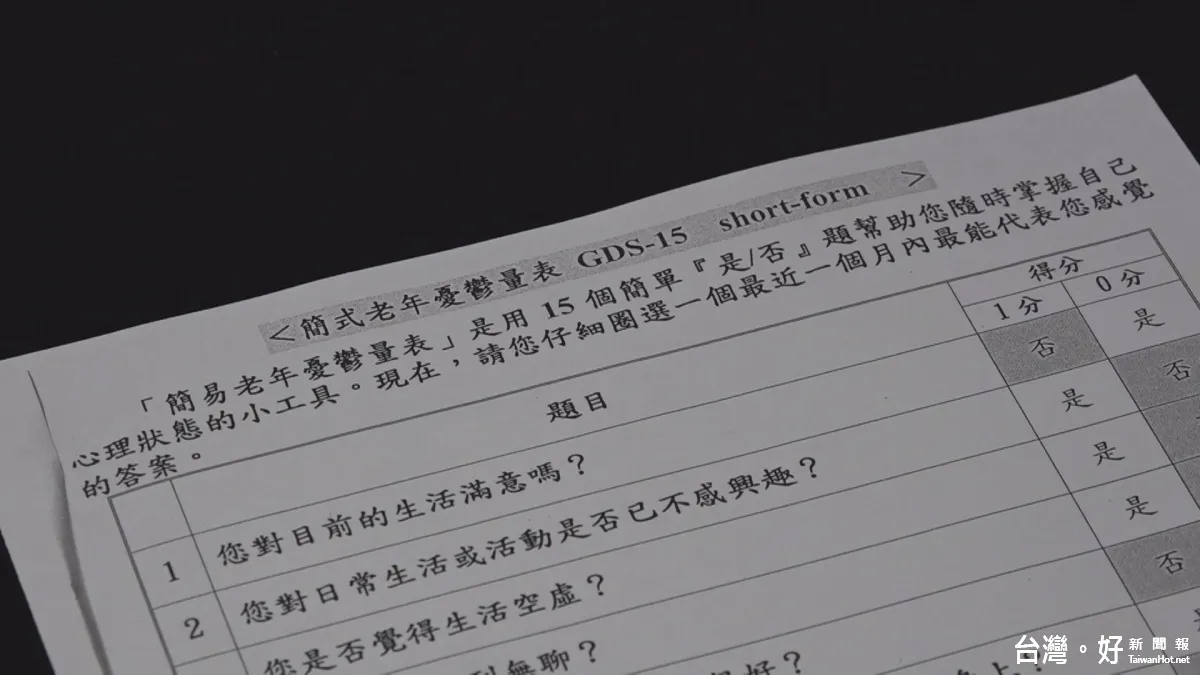 ＜簡式老年憂鬱量表 GDS-15 short-form ＞
「簡易老年憂鬱量表」是用 15 個簡單『是/否』題幫助您隨時掌握自己
心理狀態的小工具。現在，請您仔細圈選一個最近一個月內最能代表您感覺
的答案。
題目
得分
1分 0分
1 您對目前的生活滿意嗎？ 否 是
2 您對日常生活或活動是否已不感興趣？ 是 否
您是否覺得生活空虛？ 是
無聊？ 是
好？ 否
上？
台灣。好 新聞報
TaiwanHot.net